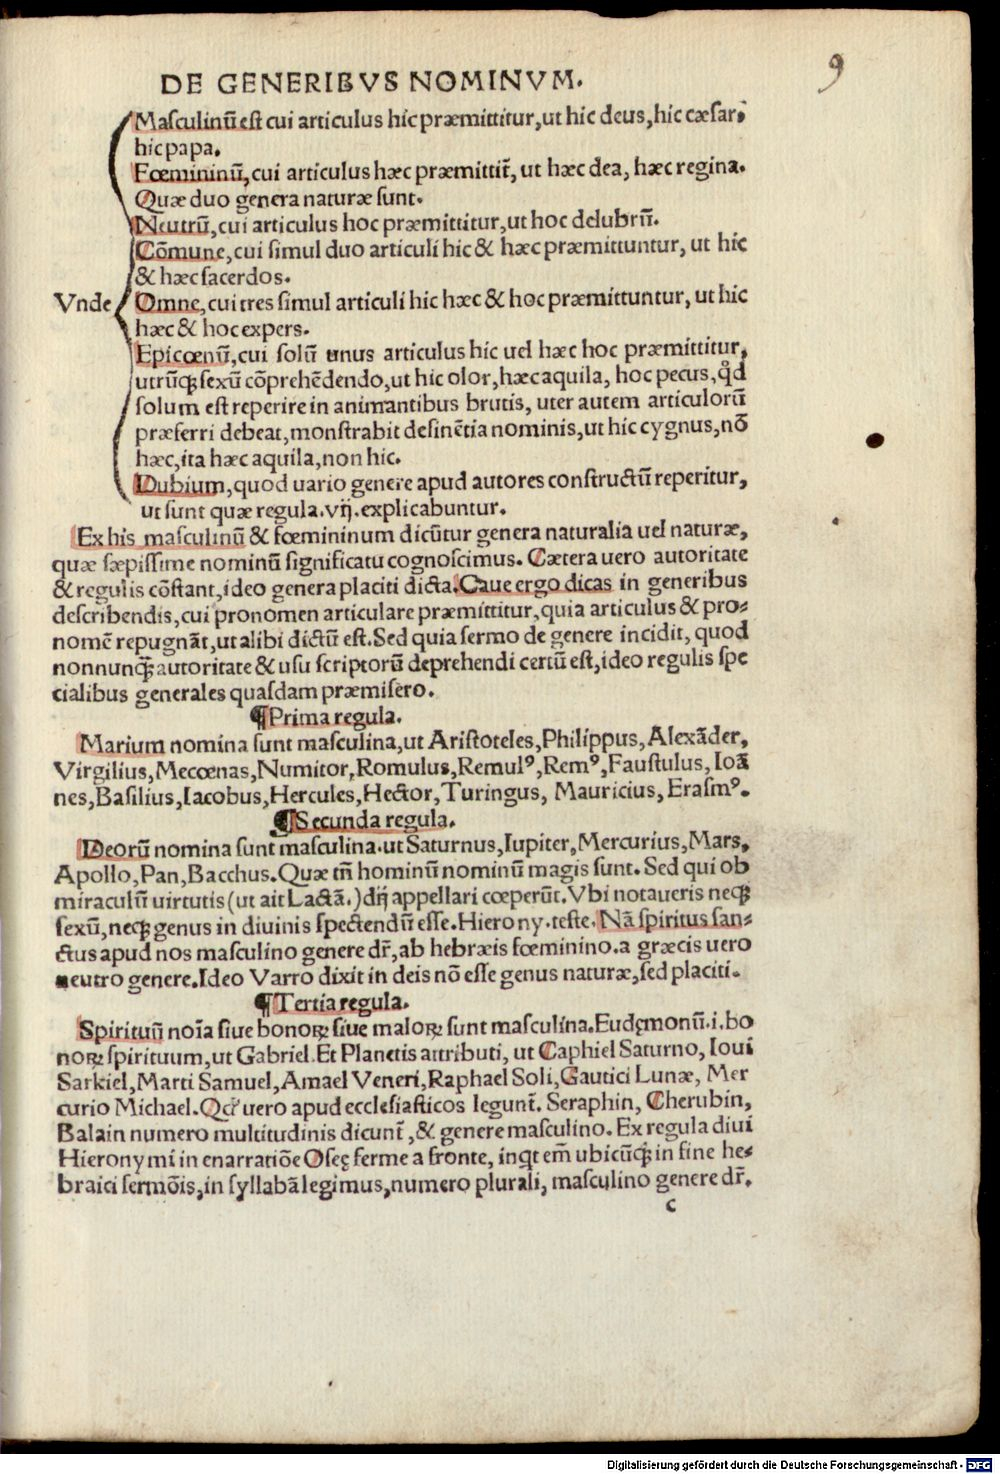 9
DE GENERIBVS NOMINVM.
Masculinũ est cui articulus hic præmittitur, ut hic deus, hic cæsar,
hic papa.
Fœmininũ, cui articulus hæc præmittit̃, ut hæc dea, hæc regina.
Quæ duo genera naturæ sunt.
Neutrũ, cui articulus hoc præmittitur, ut hoc delubrũ.
Cõmune, cui simul duo articuli hic & hæc præmittuntur, ut hic
& hæc sacerdos.
Vnde Omne, cui tres simul articuli hic hæc & hoc præmittuntur, ut hic
hæc & hoc expers.
Epicœnũ, cui solũ unus articulus hic uel hæc hoc præmittitur,
utrũq; sexũ cõprehẽdendo, ut hic olor, hæc aquila, hoc pecus, qd̊
solum est reperire in animantibus brutis, uter autem articulorũ
præferri debeat, monstrabit desinẽtia nominis, ut hic cygnus, nõ
hæc, ita hæc aquila, non hic.
Dubium, quod uario genere apud autores constructũ reperitur,
ut sunt quæ regula .vij. explicabuntur.
Ex his masculinũ & fœmininum dicũtur genera naturalia uel naturæ,
quæ sæpissime nominũ significatu cognoscimus. Cætera uero autoritate
& regulis cõstant, ideo genera placiti dicta. Caue ergo dicas in generibus
describendis, cui pronomen articulare præmittitur, quia articulus & pro-
nomẽ repugnãt, ut alibi dictũ est. Sed quia sermo de genere incidit, quod
nonnunq̃; autoritate & usu scriptorũ deprehendi certũ est, ideo regulis spe
cialibus generales quasdam præmisero.
¶ Prima regula.
Marium nomina sunt masculina, ut Aristoteles, Philippus, Alexãder,
Virgilius, Mecœnas, Numitor, Romulus, Remulꝰ, Remꝰ, Faustulus, Ioã
nes, Basilius, Iacobus, Hercules, Hector, Turingus, Mauricius, Erasmꝰ.
¶ Secunda regula.
Deorũ nomina sunt masculina. ut Saturnus, Iupiter, Mercurius, Mars,
Apollo, Pan, Bacchus. Quæ tñ hominũ nominũ magis sunt. Sed qui ob
miraculũ uirtutis (ut ait Lactã.) dij appellari cœperũt. Vbi notaueris neq;
sexũ, neq; genus in diuinis spectendũ esse. Hierony. teste. Nã spiritus san-
ctus apud nos masculino genere dr̃, ab hebræis fœminino. a græcis uero
neutro genere. Ideo Varro dixit in deis nõ esse genus naturæ, sed placiti.
¶ Tertia regula.
Spirituũ noĩa siue bonoꝝ siue maloꝝ sunt masculina. Eudęmonũ .i. bo
noꝝ spirituum, ut Gabriel. Et Planetis attributi, ut Caphiel Saturno, Ioui
Sarkiel, Marti Samuel, Amael Veneri, Raphael Soli, Gautici Lunæ, Mer
curio Michael. uero apud ecclesiasticos legunt̃. Seraphin, Cherubin,
Balain numero multitudinis dicunt̃, & genere masculino. Ex regula diui
Hieronymi in enarratiõe Oseę ferme a fronte, inqt em̃ ubicũq; in fine he-
braici sermõis, in syllabã legimus, numero plurali, masculino genere dr̃.
c
Digitalisierung gefördert durch die Deutsche Forschungsgemeinschaft - DFG